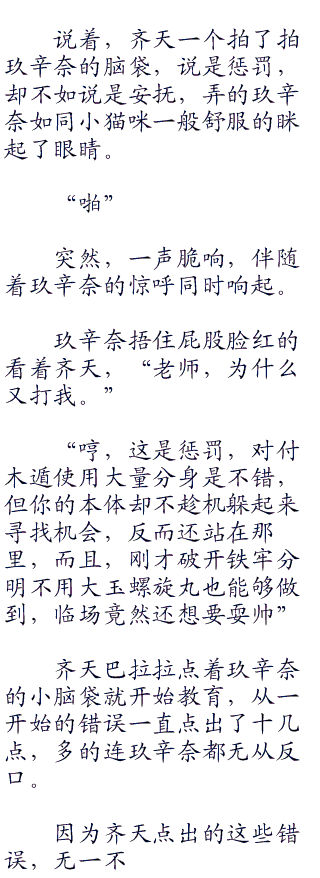 说着，齐天一个拍了拍
玖辛奈的脑袋，说是惩罚，
却不如说是安抚，弄的玖辛
奈如同小猫咪一般舒服的眯
起了眼睛。
“啪”
突然，一声脆响，伴随
着玖辛奈的惊呼同时响起。
玖辛奈捂住屁股脸红的
看着齐天，“老师，为什么
又打我。”
“哼，这是惩罚，对付
木遁使用大量分身是不错，
但你的本体却不趁机躲起来
寻找机会，反而还站在那
里，而且，刚才破开铁牢分
明不用大玉螺旋丸也能够做
到，临场竟然还想要耍帅”
齐天巴拉拉点着玖辛奈
的小脑袋就开始教育，从一
开始的错误一直点出了十几
点，多的连玖辛奈都无从反
口。
因为齐天点出的这些错
误，无一不